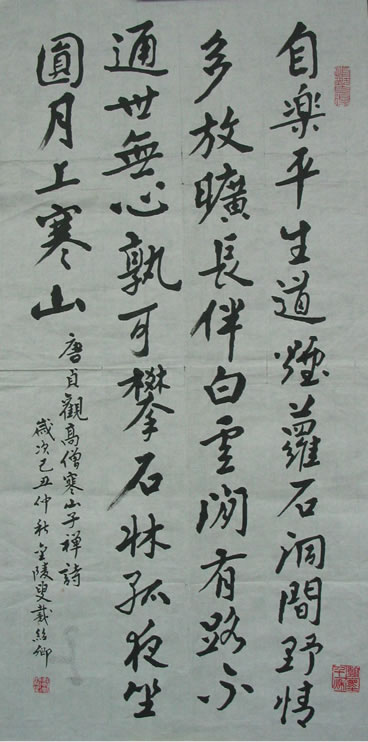 自樂平生道煙蘿石洞間野情
多放曠長伴白雲閒有路不
通世無心孰可攀石牀孤夜坐
圓月上寒山
唐貞觀高僧寒山子禪詩
歲次己丑仲秋金陵叟戴紹卿